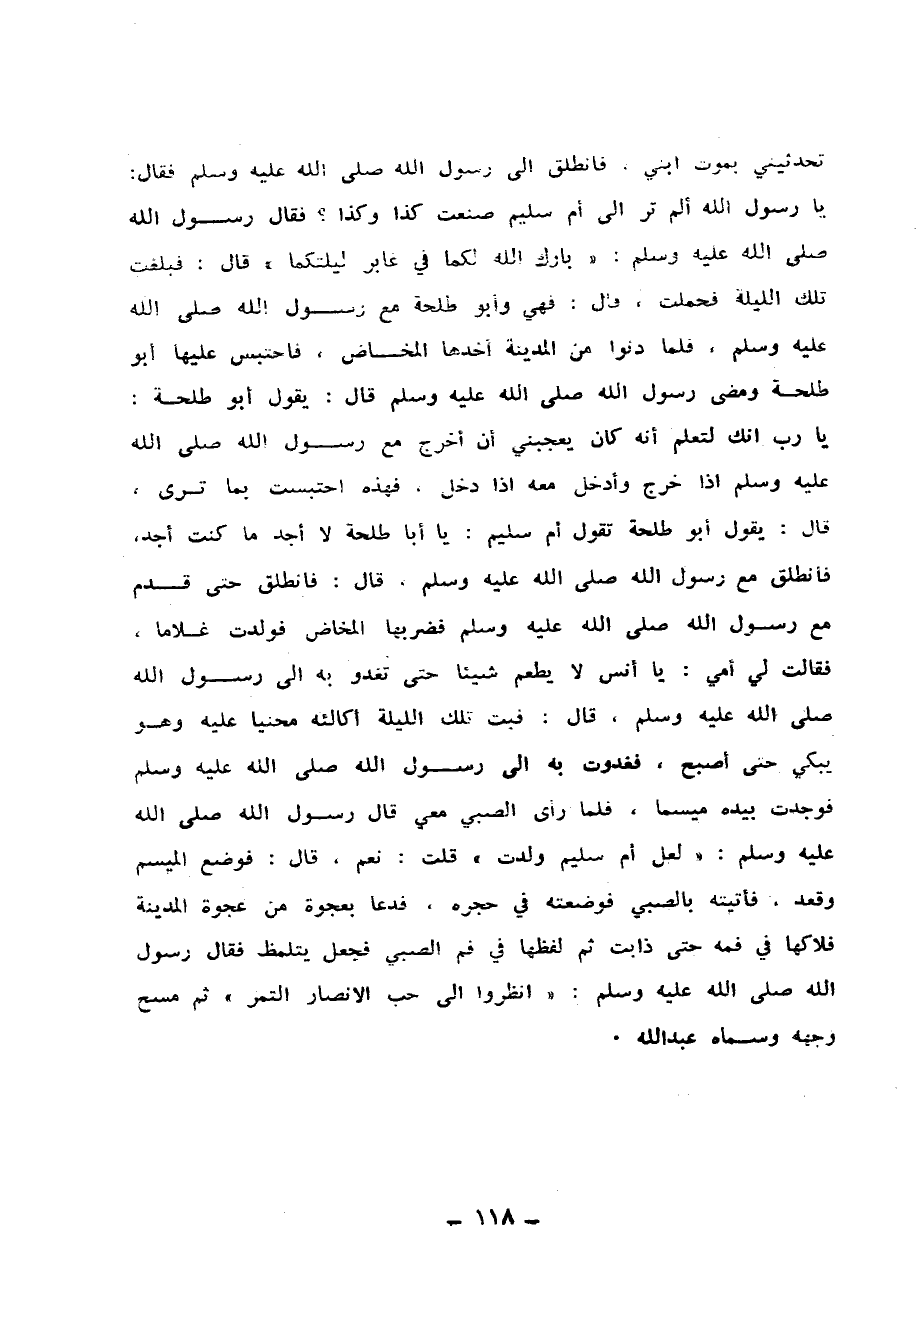 تحدثيني بموت ابني . فانطلق الى رسول الله صلى الله عليه وسلم فقال:
يا رسول الله ألم تر الى أم سليم صنعت كذا وكذا ؟ فقال رســـول الله
صلى الله عليه وسلم : « بارك الله لكما في غابر ليلتكما » قال : فبلغت
تلك الليلة فحملت ، قال : فهي وأبو طلحة مع رســـول الله صلى الله
عليه وسلم ، فلما دنوا من المدينة أخذها المخـــاض ، فاحتبس عليها أبو
طلحـة ومضى رسول الله صلى الله عليه وسلم قال : يقول أبو طلحـة :
يا رب انك لتعلم أنه كان يعجبني أن أخرج مع رســـول الله صلى الله
عليه وسلم اذا خرج وأدخل معه اذا دخل . فهذه احتبست بما تـرى ،
قال : يقول أبو طلحة تقول أم سليم : يا أبا طلحة لا أجد ما كنت أجد،
فأنطلق مع رسول الله صلى الله عليه وسلم . قال : فانطلق حتى قـــدم
مع رســول الله صلى الله عليه وسلم فضربها المخاض فولدت غـلاما ،
فقالت لي أمي : يا أنس لا يطعم شيئا حتى تغدو به الى رســـول الله
صلى الله عليه وسلم ، قال : فبت تلك الليلة أكالئه محنيا عليه وهــو
يبكي حتى أصبح ، فغدوت به الى رســـول الله صلى الله عليه وسلم
فوجدت بيده ميسما ، فلما رأى الصبي معي قال رســول الله صلى الله
عليه وسلم : « لعل أم سليم ولدت » قلت : نعم ، قال : فوضع الميسم
وقعد . فأتيته بالصبي فوضعته في حجره ، فدعا بعجوة من عجوة المدينة
فلاكها في فمه حتى ذابت ثم لفظها في فم الصبي فجعل يتلمظ فقال رسول
الله صلى الله عليه وسلم : « انظروا الى حب الانصار التمر » ثم مسح
وجهه وســماه عبدالله .
ـ ١١٨ ـ